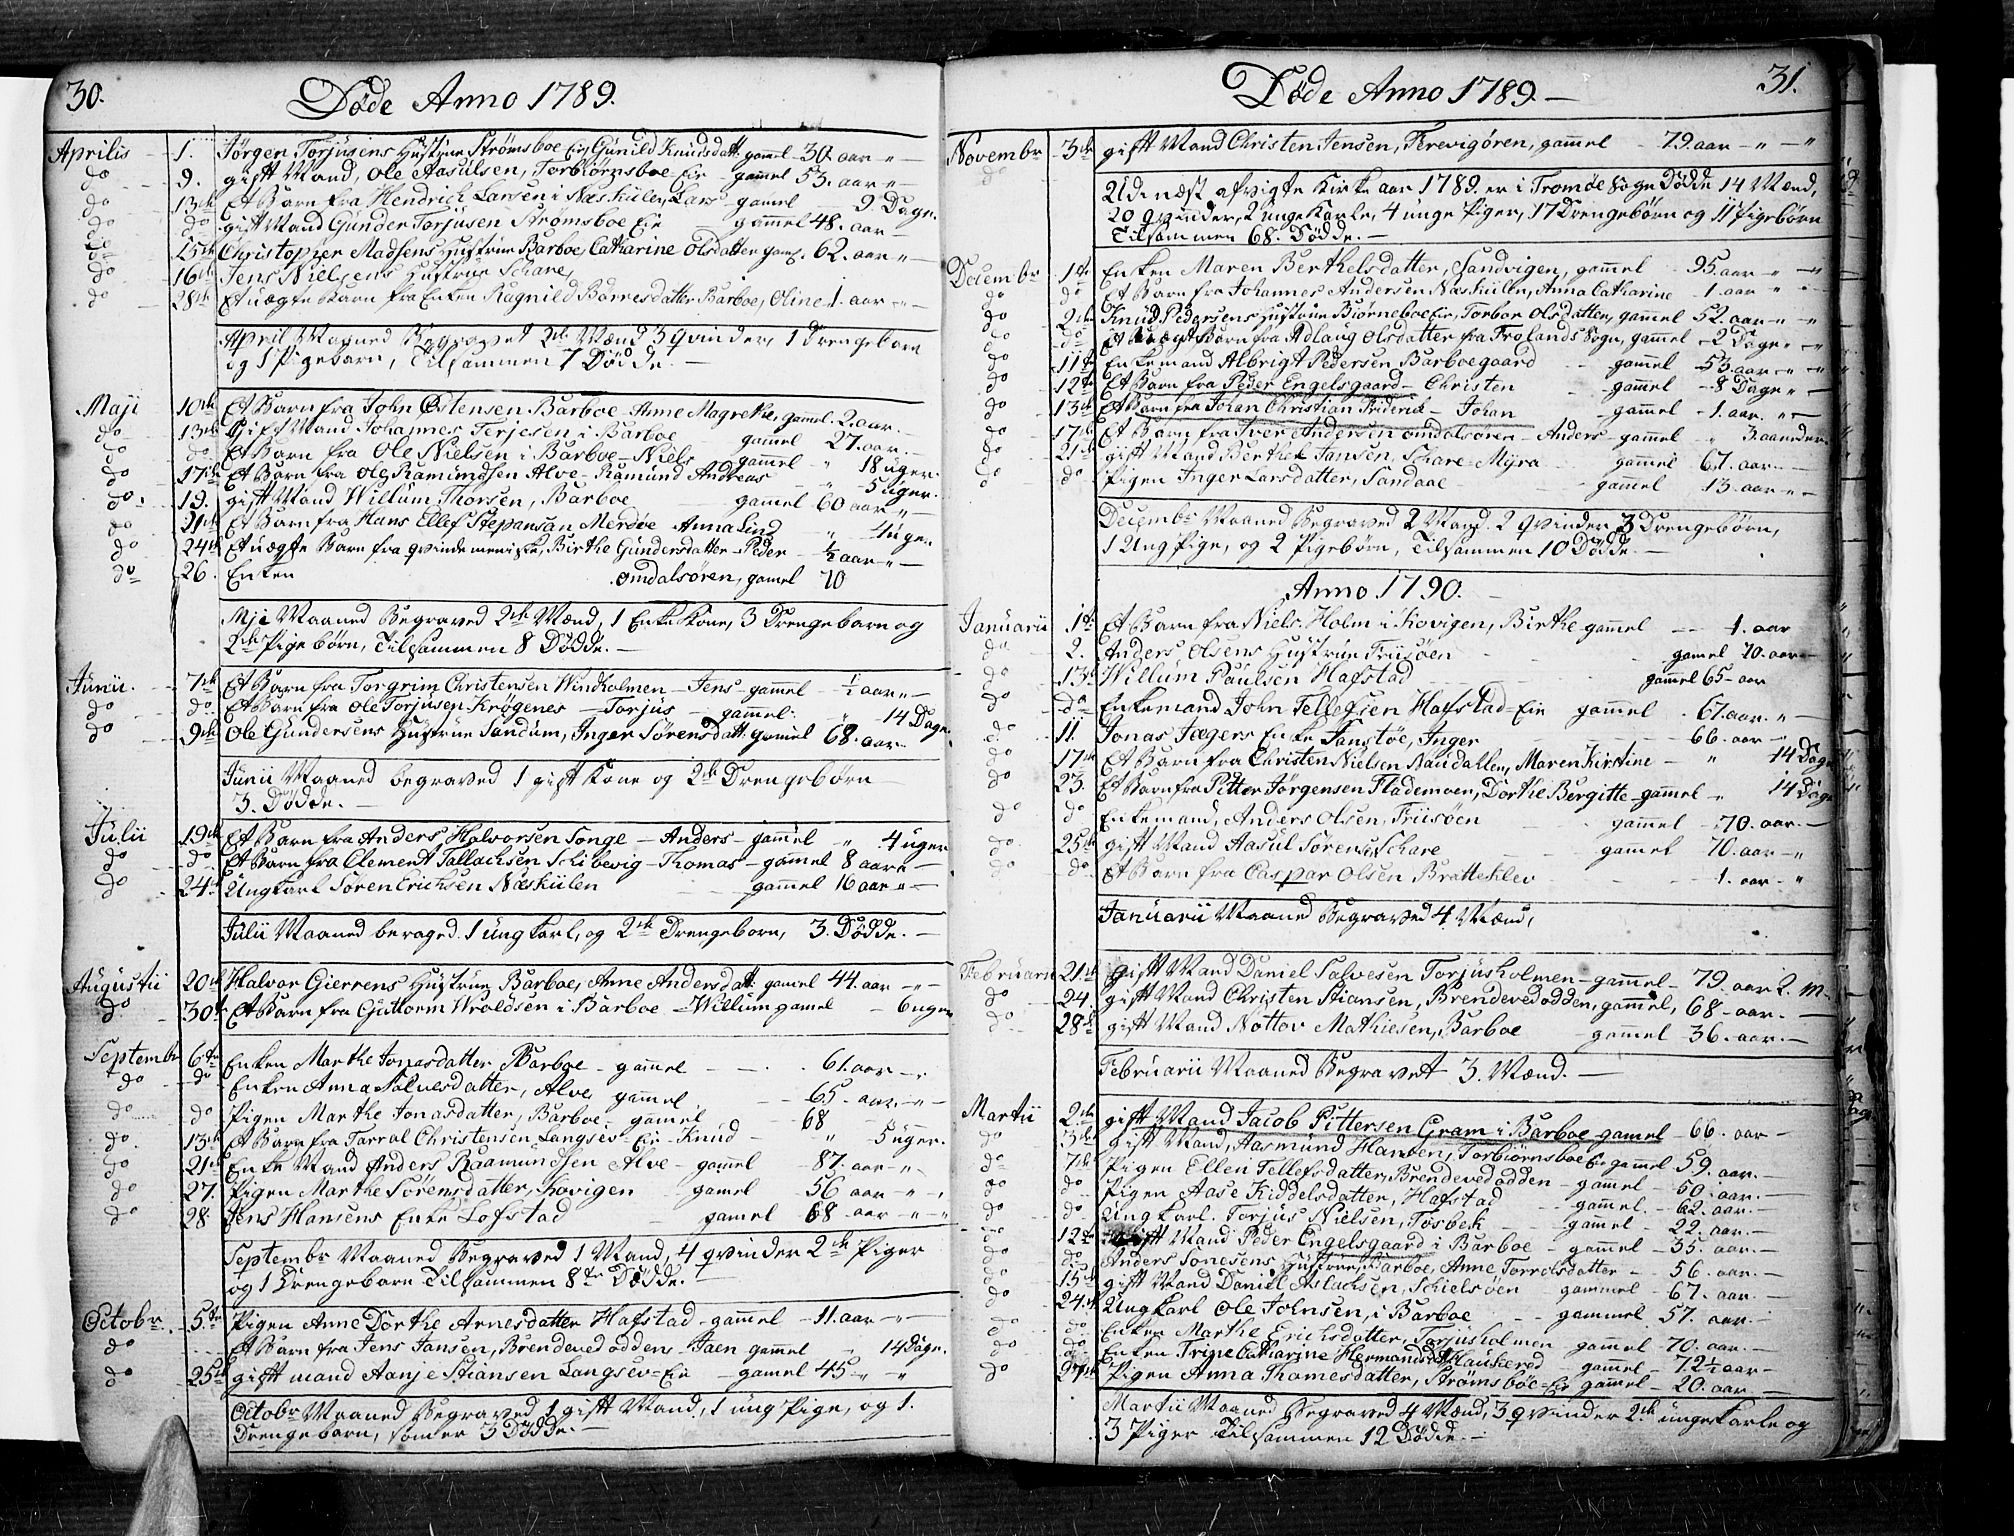 30.
Døde Anno 1789.
Aprilis 1. Jørgen Torjusens Hustrue Strømsboe Eie Gunild Knudsdatt: gamel 30 aar
do 9. gift Mand, Ole Aasulsen, Torbiørnsboe Eie gamel 53. aar
do 13de Et Barn fra Hendrich Larsen i Næskilen, Lars gamel 9 Dage.
do do gift Mand Gunder Torjusen Strømsboe Eie gamel 48. aar
do 15de Christopher Madsens Hustrue Barboe, Catharine Olsdatter gaml. 62. aar
do 16de Jens Nielsens Hustrue Schare,
do 28de Et uægte Barn fra Enken Ragnild Barresdatter Barboe, Oline 1. aar
April Maaned Begravet 2de Mænd 3 Qvinder, 1 Drengebarn
og 1 Pigebarn, Tilsammen 7 Døde.
Maji 10de Et Barn fra John Østensen Barboe Anne Magrethe, gamel 2. aar.
do 13de Gift Mand Johannes Terjesen i Barboe gamel 27. aar.
do do Et Barn fra Ole Nielsen i Barboe Niels gamel 18 uger
do 17de Et Barn fra Ole Ramundsen Alve Ramund Andreas 5 uger.
do 19. gift Mand Willum Thorsen, Barboe gamel 60 aar
do 21de Et Barn fra Hans Ellef Stepansan Merdøe Anna 4 uger.
do 24de Et uægte Barn fra qvinde menniske, Birthe Gundersdatter Peder 1/2 aar
do 26. Enken omdalsøren, gamel 70
Mji Maaned Begraved 2de Mænd, 1 Enke Kone, 3 Drengebarn og
2de Pige børn, Tilsammen 8 Dødde.
Junii. 7de Et Barn fra Torgrim Christensen Windholmen Jens gamel 1/2 aar
do do Et Barn fra Ole Torjusen Krøgenes Torjus gamel 14 Dage
do 9de Ole Gundersens Hustrue Sandum, Inger Sørensdatt: gamel 68. aar
Junii Maaned begraved 1 gift Kone og 2de Drengebørn
3. Dødde.
Julii 19de Et Barn fra Anders Halvorsen Songe Anders gamel 4 uger
do do Et Barn fra Clement Tallachsen Schibevig Thomas gamel 8 aar
do 24de Ungkarl Søren Erichsen Næskilen gamel 16 aar
Julii Maaned beraged. 1 ungkarl, og 2de Drengeborn, 3. Dødde.
Augustii 20de Halvor Gierrens Hustrue Barboe, Anne Andersdatt: gamel 44. aar
do 30te Et Barn fra Guttorm i Barboe Willum gamel 6 uger
Septembr 6te Enken Marthe Jonasdatter, Barboe gamel 61. aar
do do Enken Anna Salvesdatter, Alve, gamel 65. aar
do do Pigen Marthe Jonasdatter, Barboe, gamel 68
do 13de Et Barn fra Tarral Christensen Langsev Eie Knud 5 uger.
do 21de Enke Mand Anders Raamundsen Alve gamel 87. aar
do 27. Pigen Marthe Sørensdatter, Hovigen gamel 56 aar
do 28 Jens Hansens Enke Lofstad gamel 68 aar
Septembr Maaned Begraved 1 Mand, 4 qvinder 2de Piger
og 1 Drengebarn Tilsammen 8te Dødde.
Octobr 5te Pigen Anne Dorthe Arnesdatter Hafstad gamel 11. aar
do Et Barn fra Jens Jansen, Brendevedoddens Jaen gamel 14 Dage.
do 25de gift mand Aanje Stiansen Langsev Eie gamel 45
Octobr Maaned Begraved 1 gift Mand, 1 ung Pige, og 1.
Drengebarn, somer 3 Dødde.
31.
Døde Anno 1789.
Novembr 3de gift Mand Christen Jensen, Ferevigøren, gamel 79. aar
do
Udi næst afvigte Kirke aar 1789. er i Tromøe Sogn Dødde 14 Mænd,
20 qvinder, 2 unge Karle, 4 unge Piger, 17 Drengebørn og 11 Pigebørn
Tilsammen 68. Dødde.
Decembr 1te Enken Maren Berthelsdatter, Sandvigen, gamel 95. aar
do do Et Barn fra Johannes Andersen Næskilen, Anna Catharine 1. aar
do 2de Knud Pedersens Hustrue Biørneboe Eie, Torbor Olsdatter, gamel 52. aar
do do Et uægt Barn fra Adlaug Olsdatter fra Frolands Sogn, gamel 2 Dage
do 11te Enkemand Albrigt Pedersen Barboegaard gamel 53. aar
do 12te Et Barn fra Peder Engelsgaard Christen gamel 8 Dage
do 13de Et Barn fra Johan Christian Friderich Johan gamel 1. aar.
do 17de Et Barn fra Iver Andersen omdalsøren Anders gamel 3 aaneder
do 21de gift Mand Berthel Jansen, Schare Myra gamel 67. aar.
do do Pigen Inger Larsdatter, Sandaae gamel 13. aar
Decembr Maaned Begraved 2 Mænd. 2 qvinder 3 Drengebørn,
1 Ung Pige, og 2 Pigebørn, Tilsammen 10 Dødde.
Anno 1790.
Januarii 1te Et Barn fra Niels Holm i Hovigen, Birthe gamel 1. aar
do 2. Anders Olsens Hustrue Friisøen gamel 70. aar
do 13de Willum Paulsen Hafstad gamel 65 aar
do do Enkemand John Tellefsen Hafstad Eie gamel 67. aar.
do 11. Jonas Jægers Enke Fanstøe, Inger 66. aar
do 17de Et Barn fra Christen Nielsen Naudahlen, Maren Kirstine 14 Dage
do 23. Et Barn fra Pitter Jørgensen Flademoen, Dorthe Bergitte gamel 14 Dage
do do Enkemand, Anders Olsen, Friisøen gamel 70. aar.
do 25de gift Mand Aasul Sørensen Schare gamel 70. aar
do do Et Barn fra Caspar Olsen Brattekley 1. aar
Januarii Maaned Begraved 4 Mænd,
Februarii 21de gift Mand Daniel Salvesen Torjusholmen gamel 79. aar 2. M.
do 24. gift Mand Christen Stiansen, Brendevedodden, gamel, 68 aar.
do 28de gift Mand Nottov Mathiesen, Barboe gamel 36. aar.
Februarii Maaned Begravet 3. Mænd.
Martii 2de gift Mand Jacob Pittersen Gram i Barboe gamel 66. aar
do 3de gift Mand, Aasmund Hansen, Torbiørnsboe Eie gamel 59. aar.
do 7de Pigen Ellen Tellefsdatter, Brendevedodden gamel 50. aar.
do do Pigen Aase Kiddelsdatter, Hafstad gamel. 62. aar.
do do Ungkarl. Torjus Nielsen, Fosbek gamel 22. aar.
do 12te gift Mand Peder Engelsgaard i Barboe gamel 35. aar.
do do Anders Sonesens Hustrue, Barboe, Anne Torrelsdatter 56. aar.
do 15de gift Mand Daniel Aslachsen, Schielsøen gammel 67. aar.
do 24de Ungkarl Ole Johnsen, i Barboe gammel 57. aar.
do do Enken Marthe Erichsdatter, Torjusholmen gammel 70. aar.
do do Enken Trine Catharine Hermansdatt Haukered gammel 72 1/2 aar
do 27de Pigen Anna Thomesdatter, Strømsbøe Eie gammel 20. aar
Martii Maaned Begraved 4 Mænd, 3 qvinder 2de unge Karle og
3 Piger Tilsammen 12 Dødde.